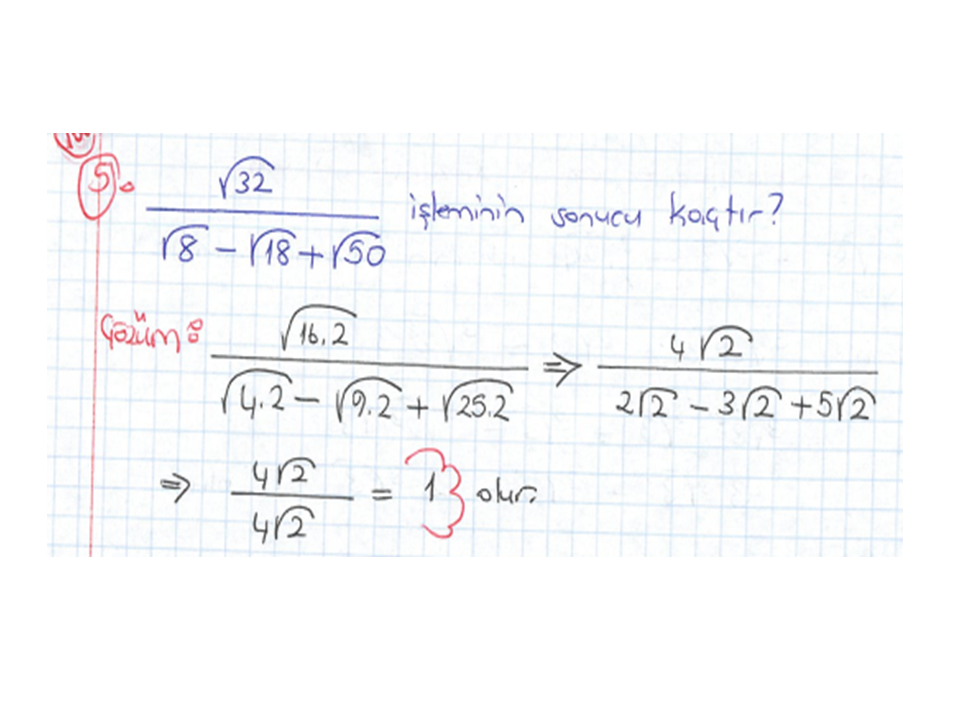 5. √32 / (√8 - √18 + √50) işleminin sonucu kaçtır?
Çözüm: √16.2 / (√4.2 - √9.2 + √25.2) ⇒ 4√2 / (2√2 - 3√2 + 5√2)
⇒ 4√2 / 4√2 = 1 olur.